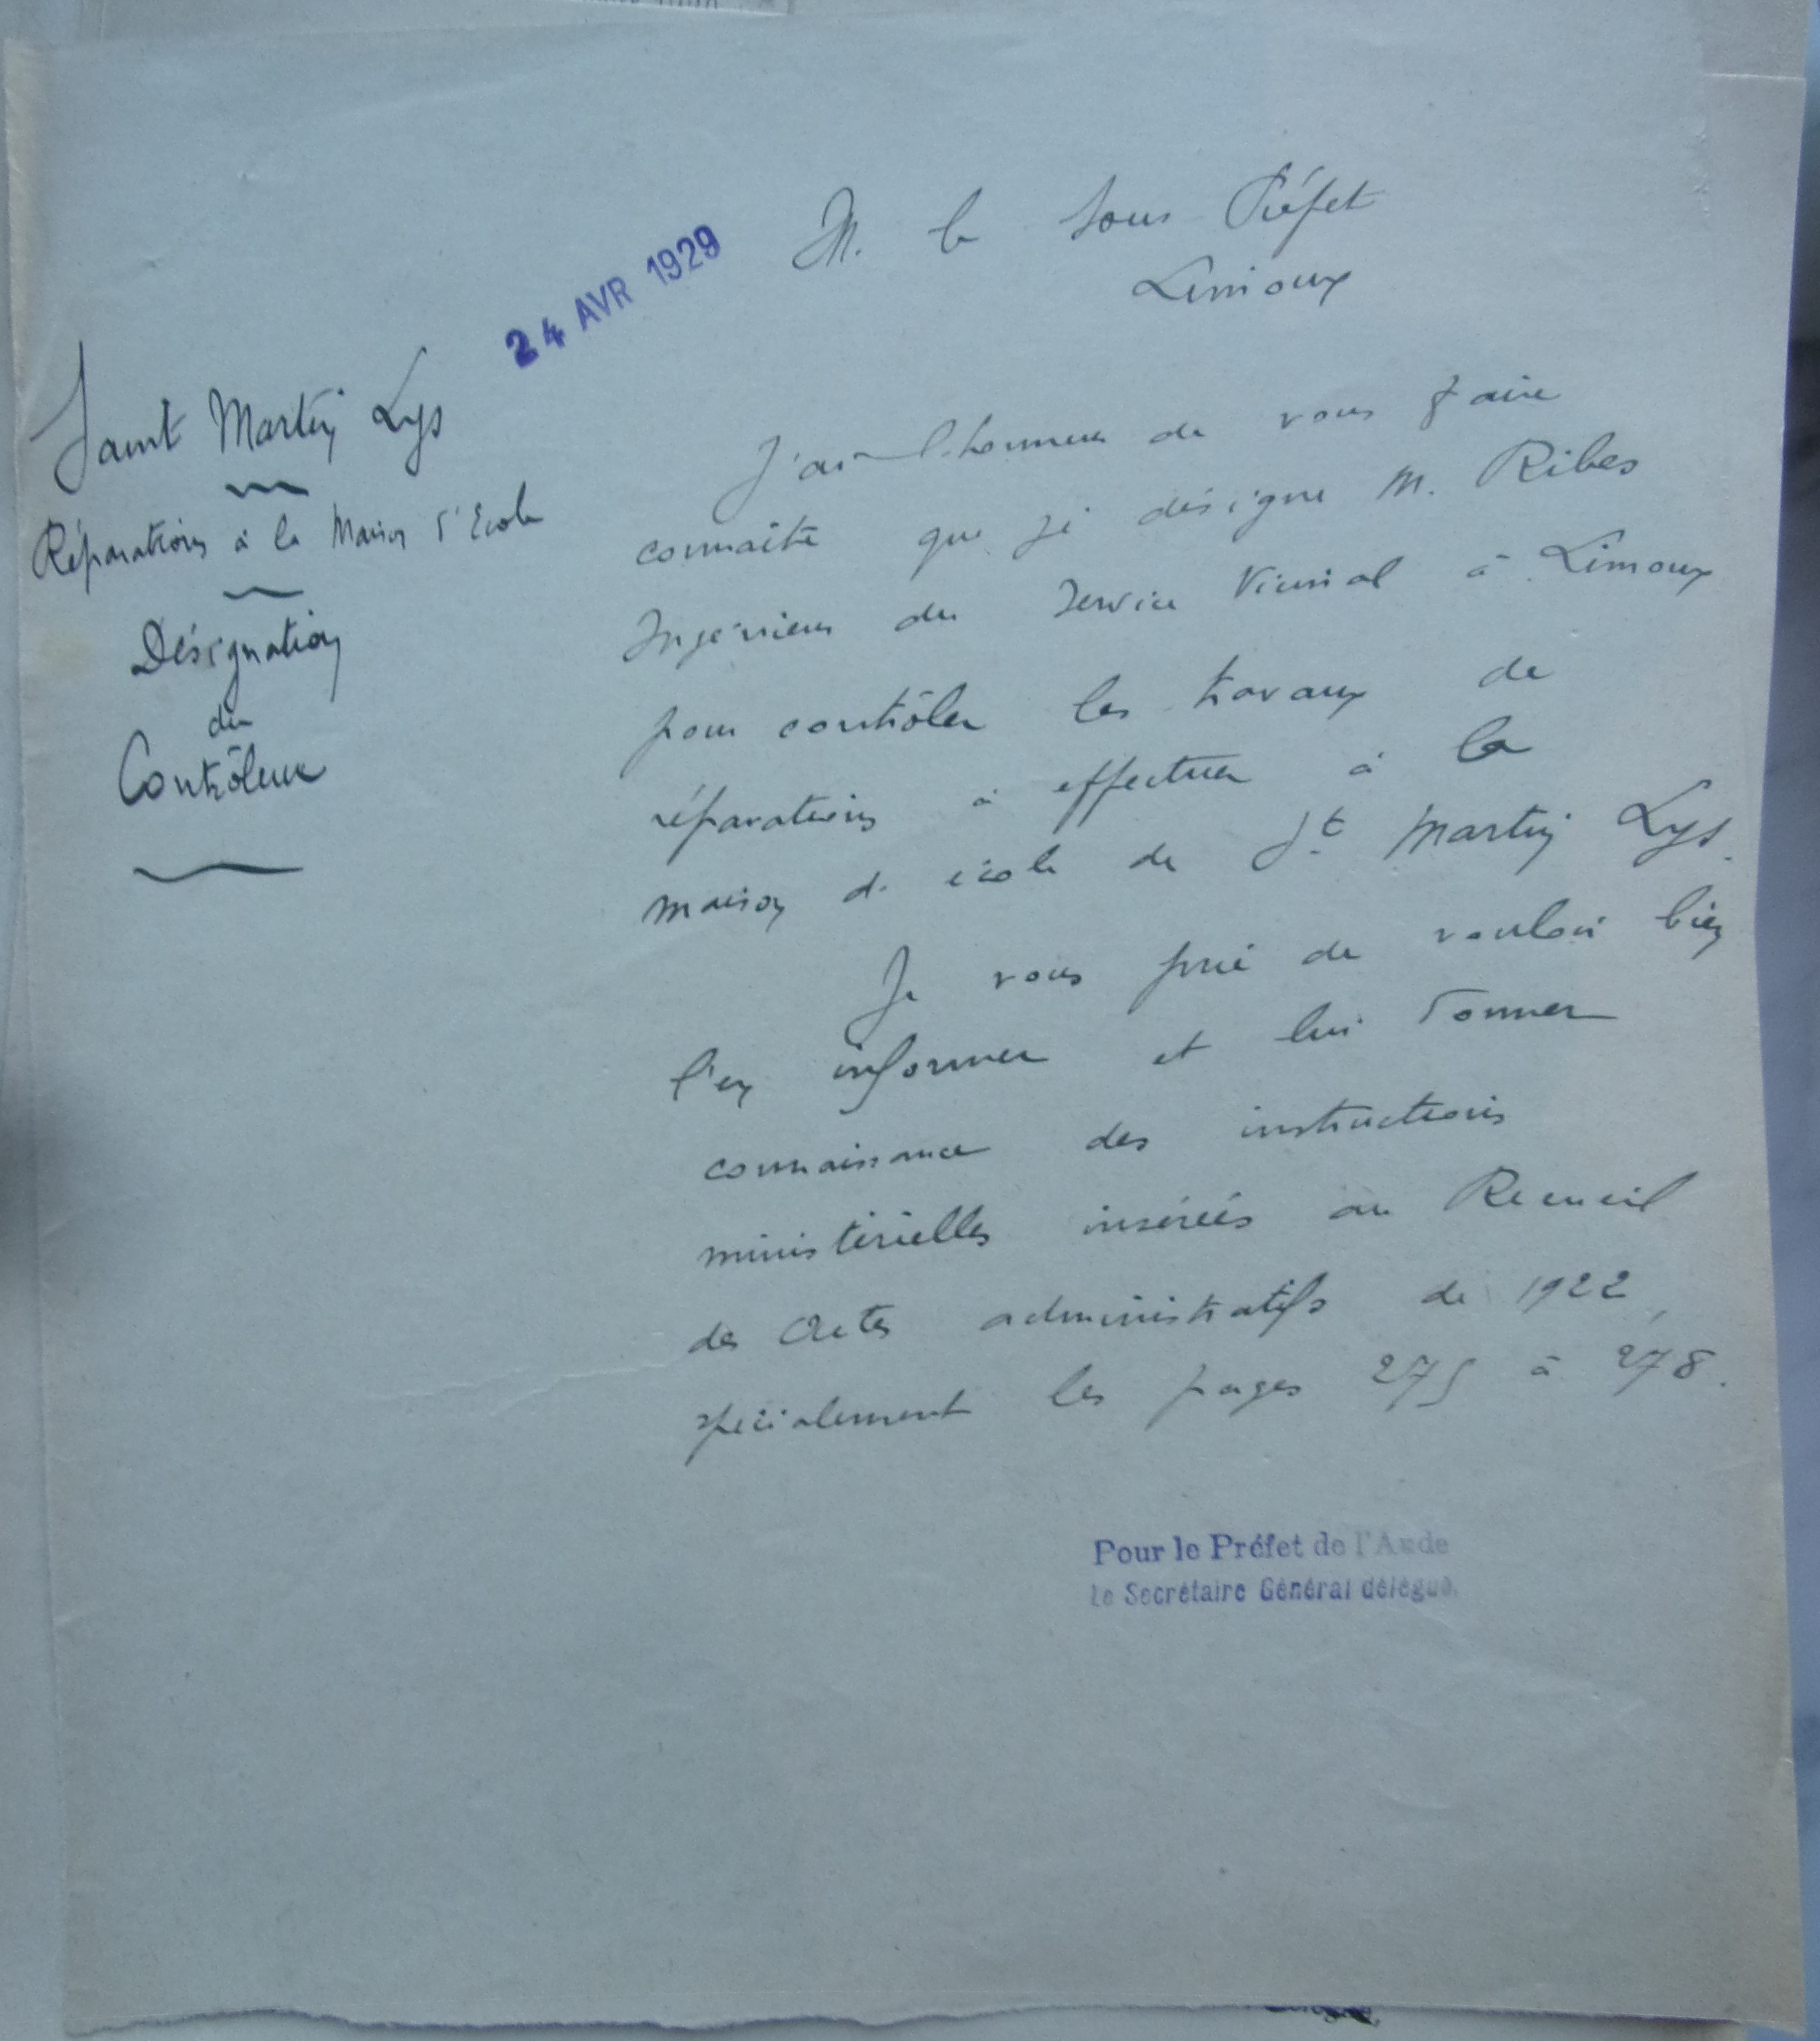 24 AVR 1929
M. le Sous Préfet
Limoux
Saint Martin Lys
Réparations à la Maison d'Ecole
Désignation
du
Contrôleur
J'ai l'honneur de vous faire
connaître que je désigne M. Ribes
Ingénieur du Service Vicinal à Limoux
pour contrôler les travaux de
réparations à effectuer à la
maison d'école de St Martin Lys.
Je vous prie de vouloir bien
l'en informer et lui donner
connaissance des instructions
ministérielles insérées au Recueil
des Actes administratifs de 1922,
spécialement les pages 275 à 278.
Pour le Préfet de l'Aude
Le Secrétaire Général délégué.